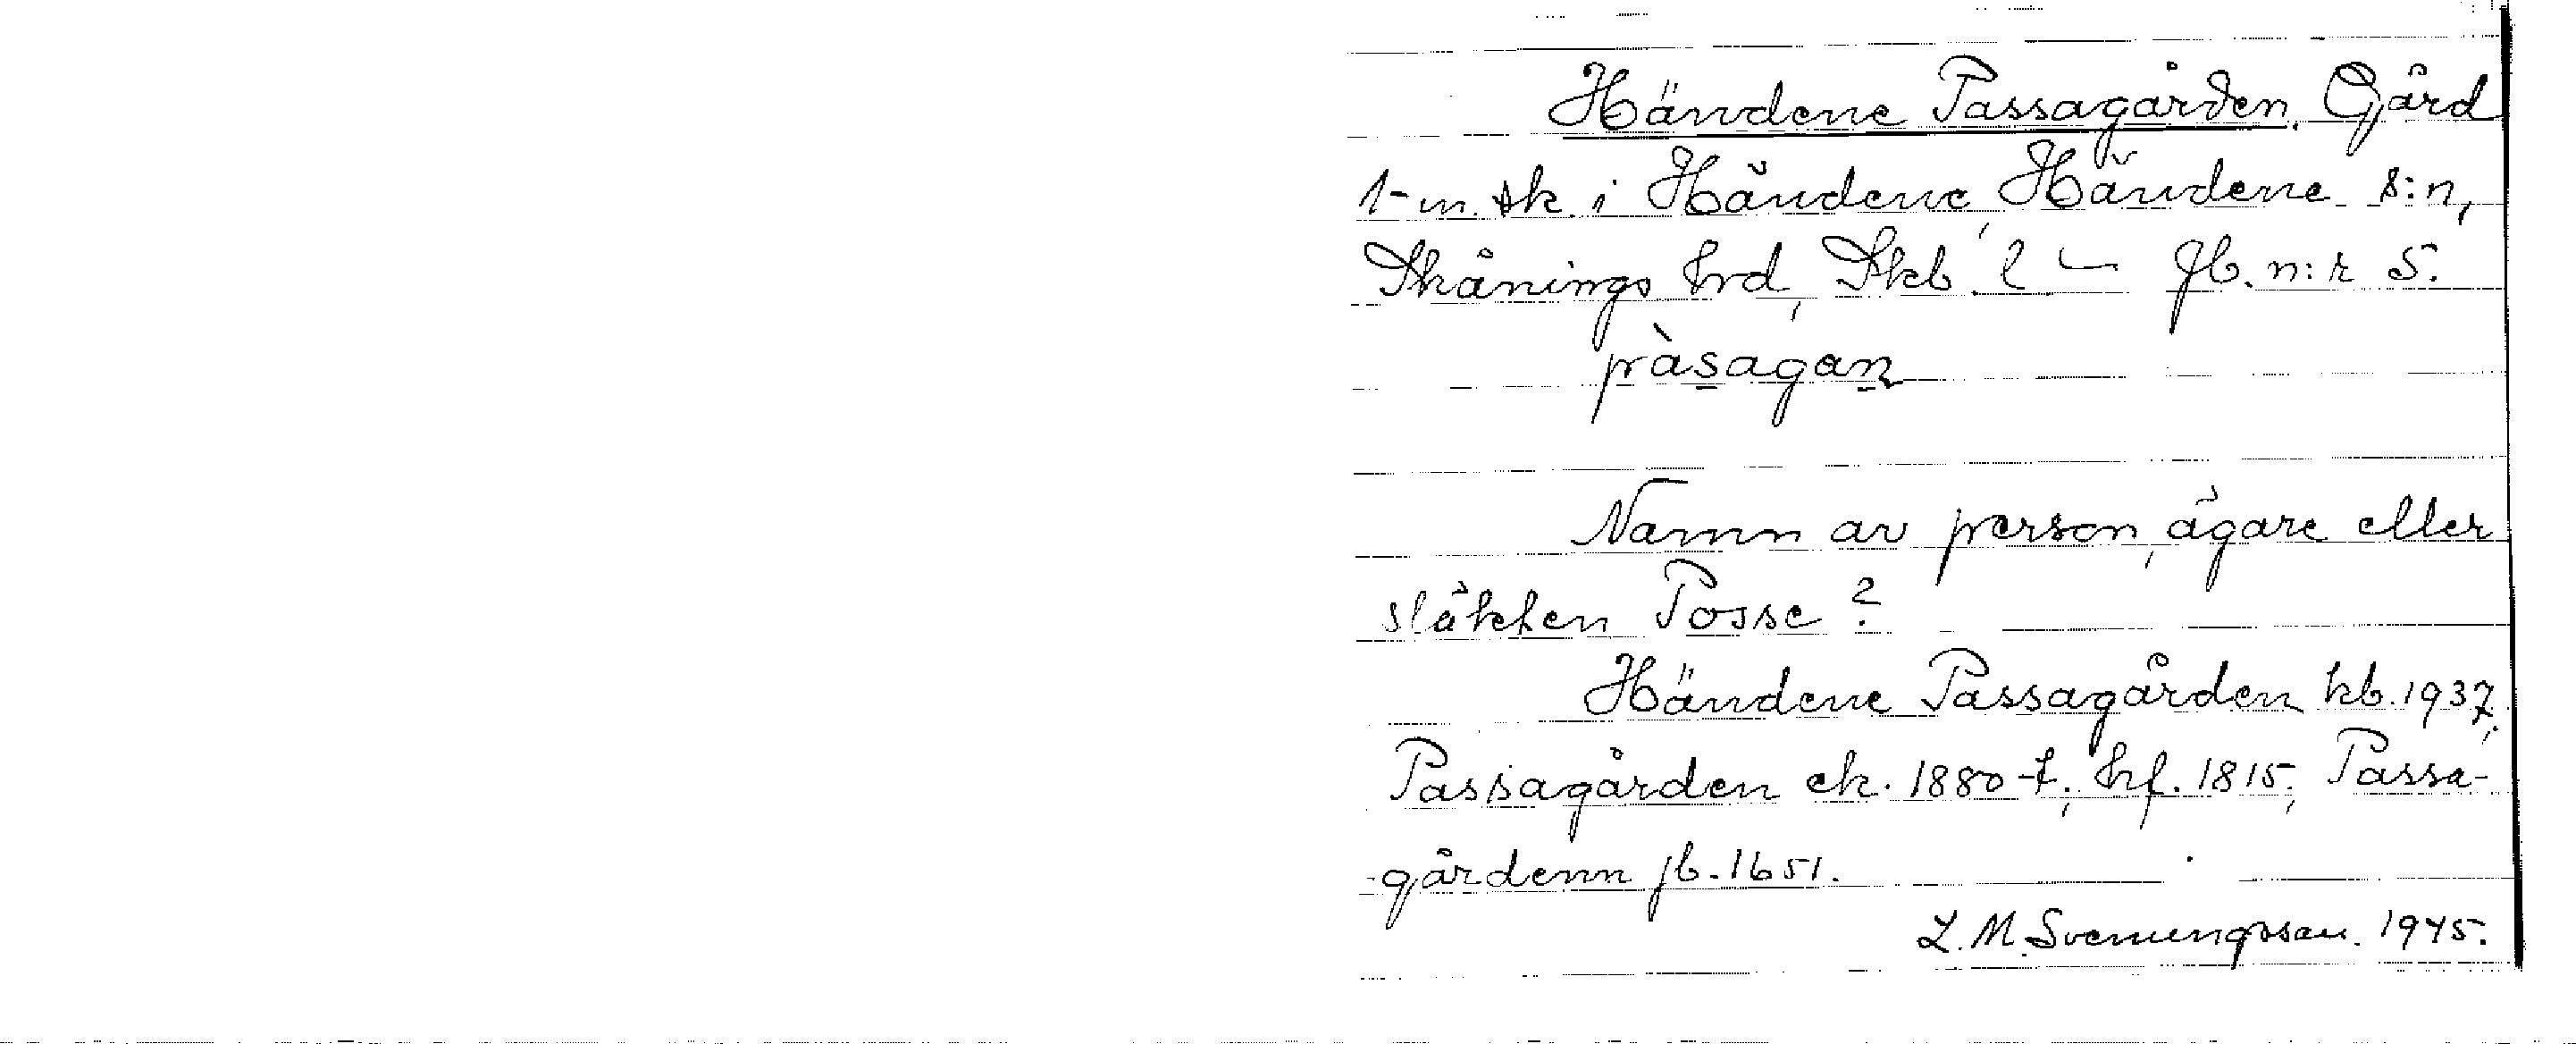 Händene Passagården. Gård
1 m. sk. i Händene, Händene s:n,
Skånings hrd, Skb. l – Jb. n:r 5.
pàsagan
Namn av person, ägare eller
släkten Posse?
Händene Passagården kb. 1937;
Passagården ek. 1880-t.; hf. 1815; Passa-
gårdenn jb. 1651.
L. M. Svenungsson. 1945.